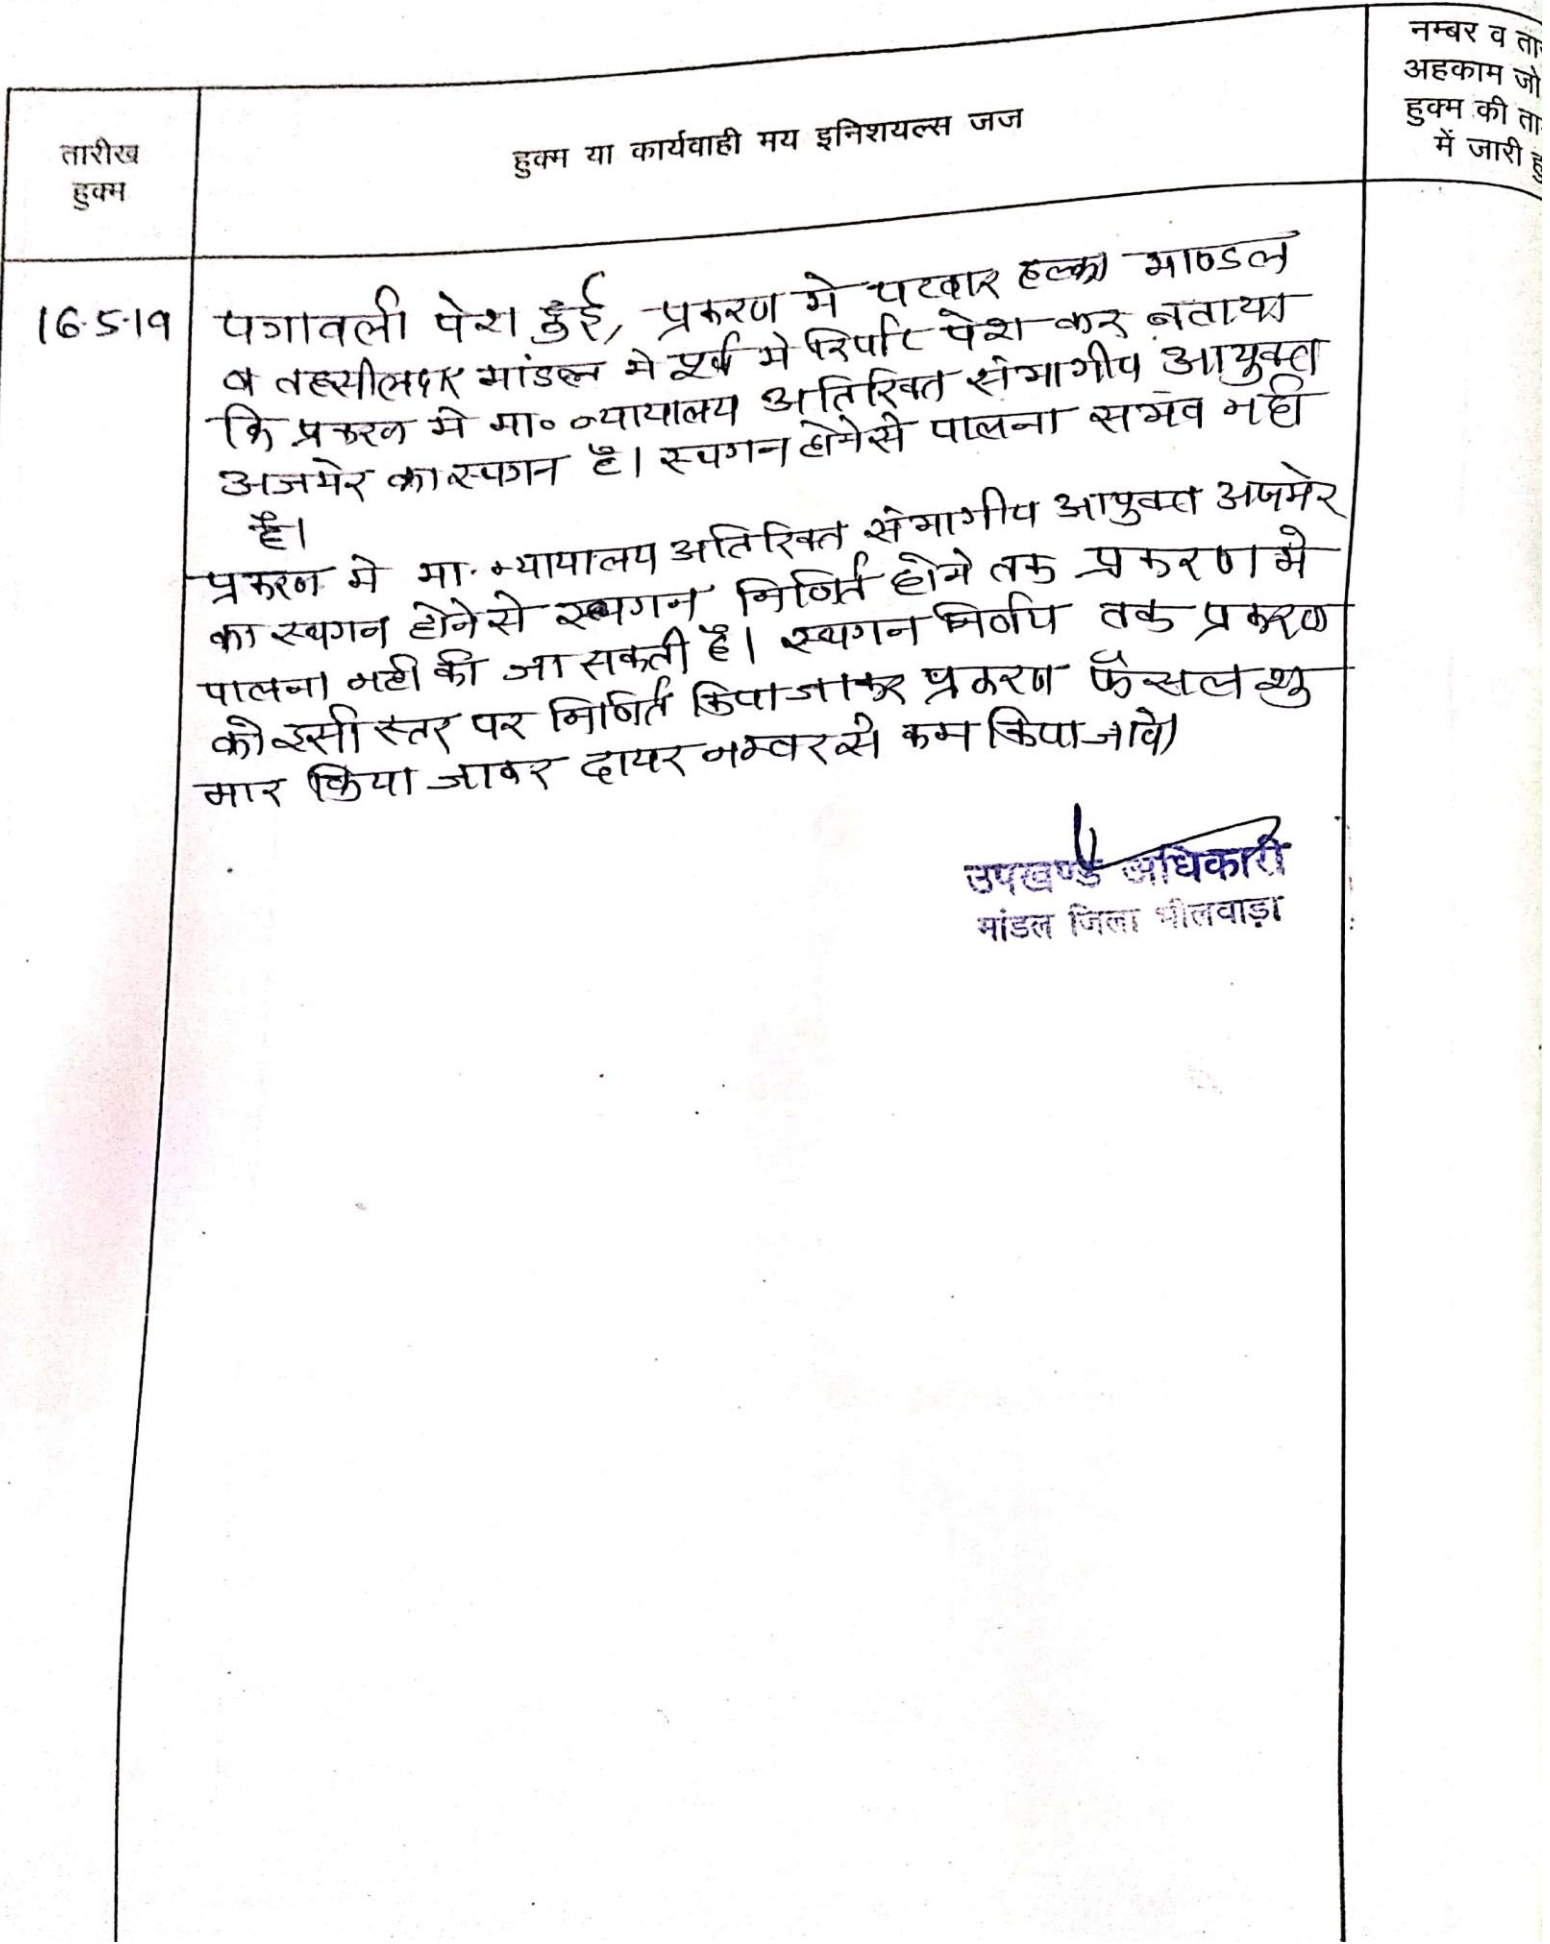 तारीख
हुक्म
हुक्म या कार्यवाही मय इनिशयल्स जज
नम्बर व ता
अहकाम जो
हुक्म की ता
में जारी हु
16.5.19
पत्रावली पेश हुई, प्रकरण मे पटवार हल्का माण्डल
व तहसीलदार मांडल ने पूर्व मे रिपोर्ट पेश कर बताया
कि प्रकरण मे मा० न्यायालय अतिरिक्त संभागीय आयुक्त
अजमेर का स्थगन है। स्थगन होने से पालना सभंव नही
है।
प्रकरण मे मा. न्यायालय अतिरिक्त संभागीय आयुक्त अजमेर
का स्थगन होने से स्थगन निर्णित होने तक प्रकरण मे
पालना नही की जा सकती है। स्थगन निर्णय तक प्रकरण
को इसी स्तर पर निर्णित किया जाकर प्रकरण फैसल शु
मार किया जाकर दायर नम्बर से कम किया जावे।
उपखण्ड अधिकारी
मांडल जिला भीलवाड़ा